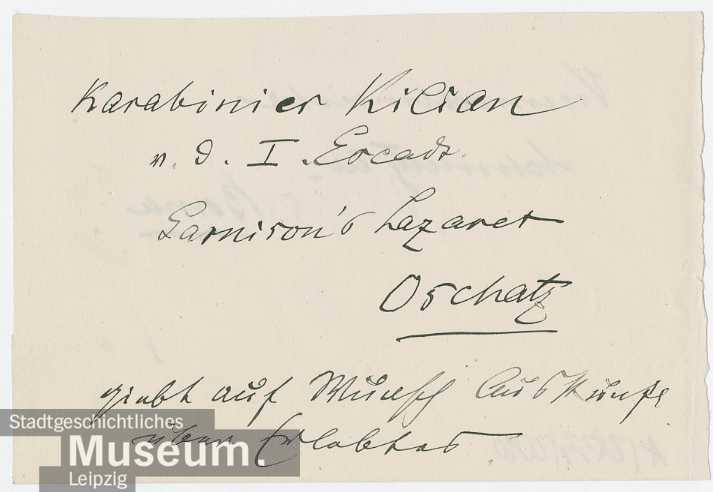 Karabinier Kilian
v. d. I. Escadr.
Garnison's Lazaret
Oschatz
giebt auf Wunsch Auskunft
über Erlebtes
Stadtgeschichtliches
Museum.
Leipzig